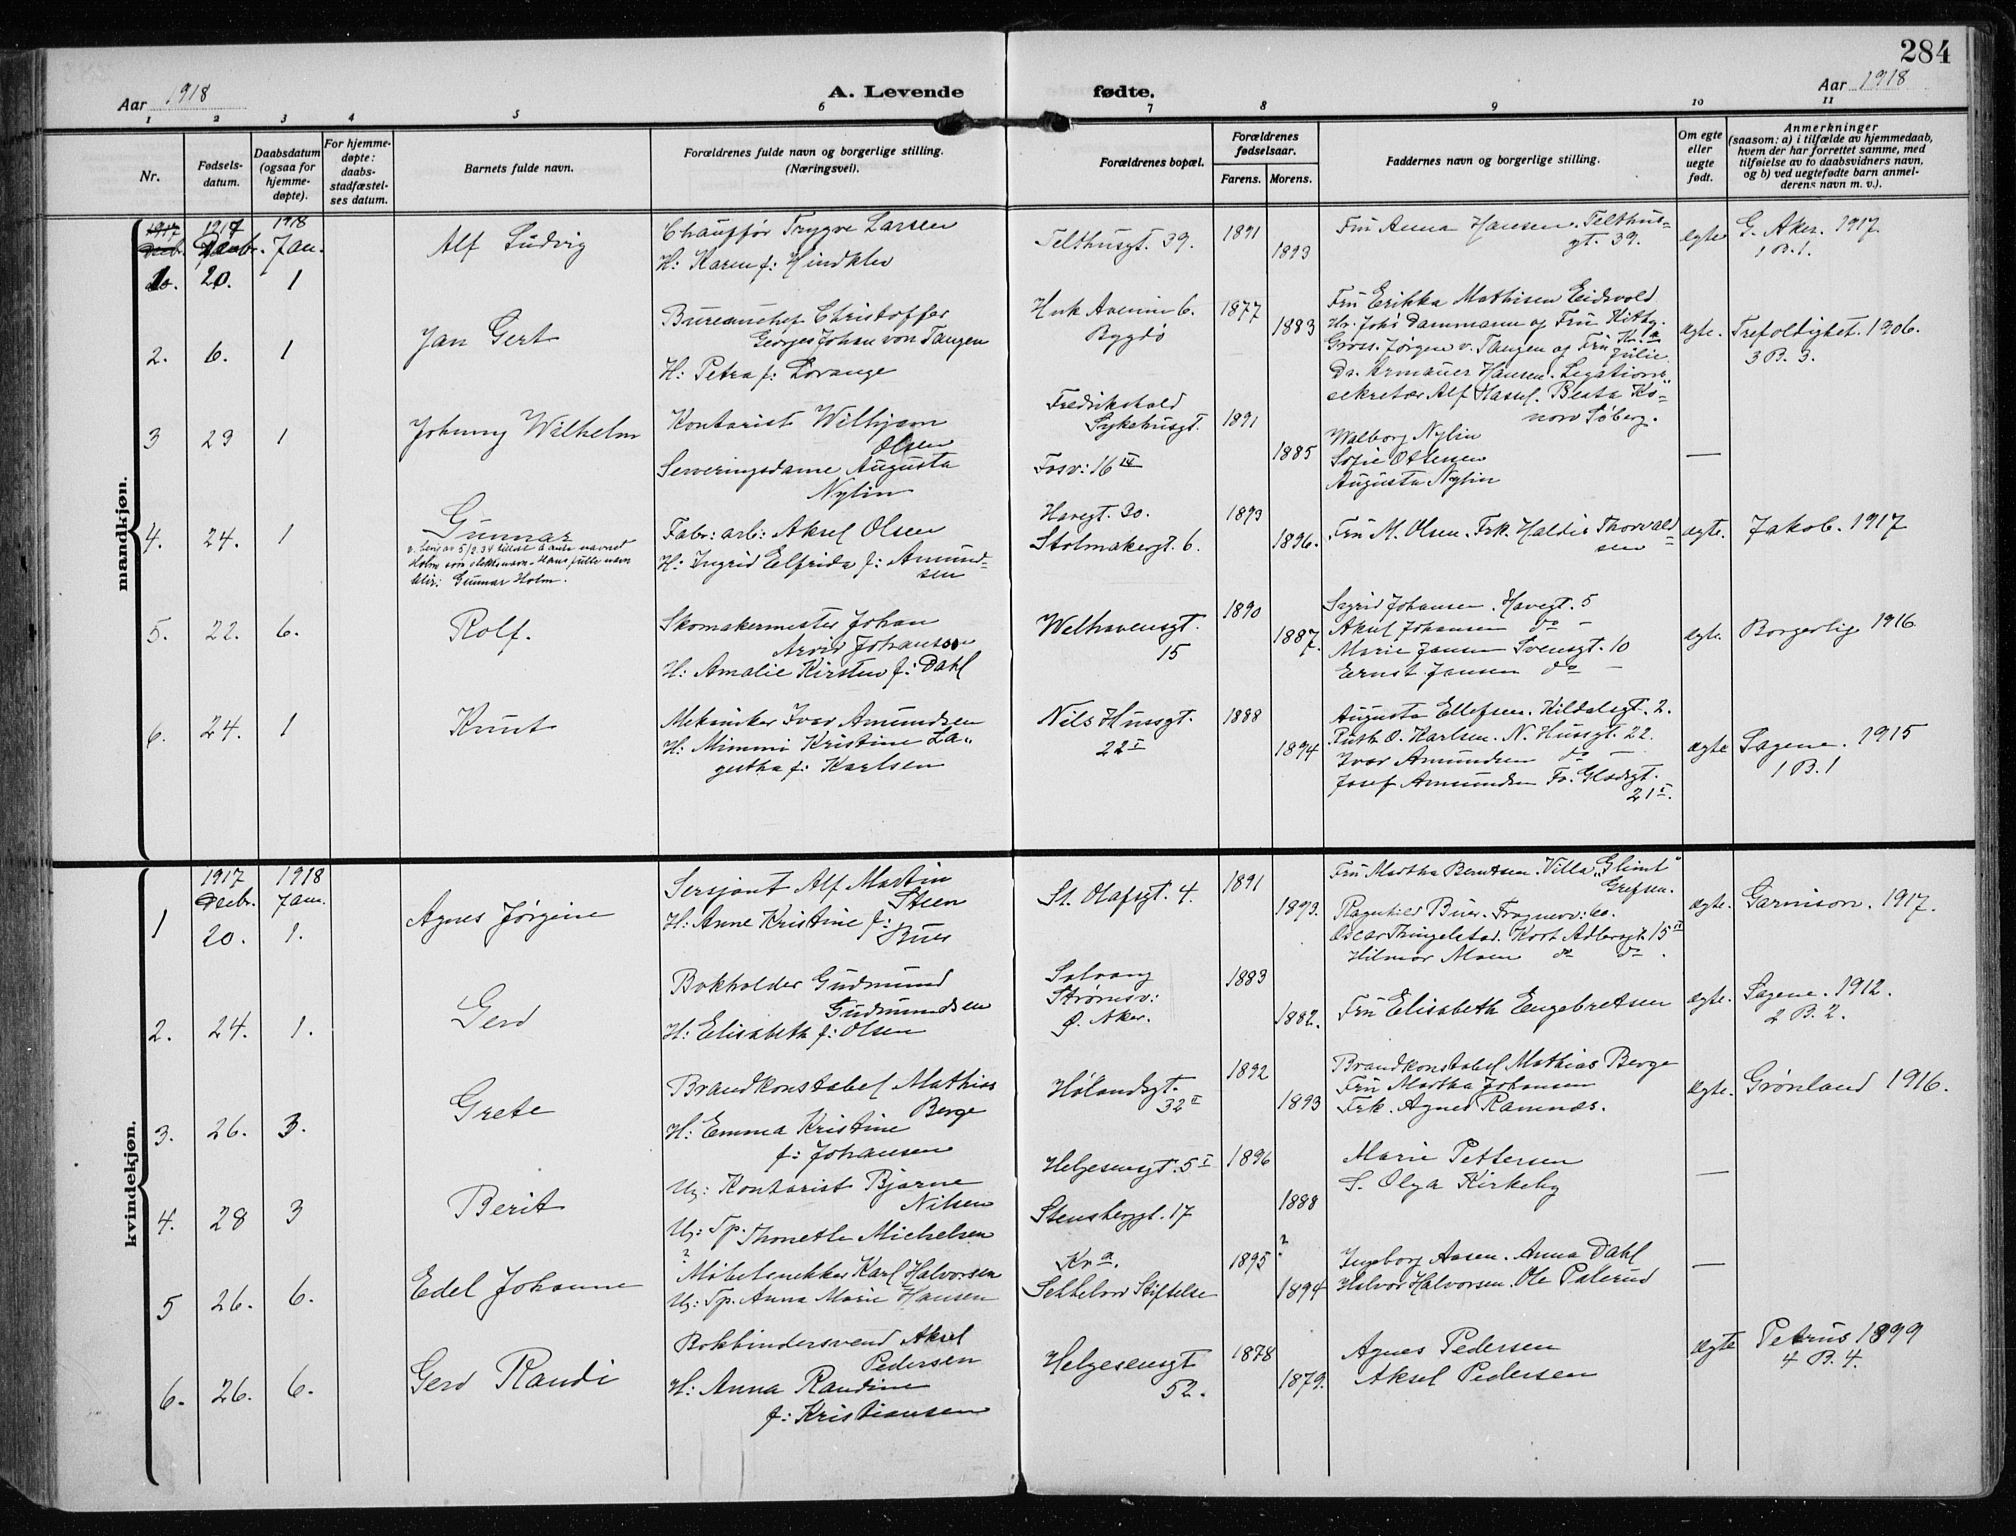 284
Aar 1918
A. Levende
fødte.
Aar 1918
1 2 3 4 5 6 7 8 9 10 11
Nr.
Fødsels-
datum.
Daabsdatum
(ogsaa for
hjemme-
døpte).
For hjemme-
døpte:
daabs-
stadfæstel-
ses datum.
Barnets fulde navn.
Forældrenes fulde navn og borgerlige stilling.
(Næringsvei).
Forældrenes bopæl.
Forældrenes
fødselsaar.
Farens. Morens.
Faddernes navn og borgerlige stilling.
Om egte
eller
uegte
født.
Anmerkninger
(saasom: a) i tilfælde av hjemmedaab,
hvem der har forrettet samme, med
tilføielse av to daabsvidners navn,
og b) ved uegtefødte barn anmel-
derens navn m. v.).
mandkjøn.
1917 1918
Decbr. Jan.
1. 20. 1
Alf Ludvig
Chauffør Trygve Larsen
H: Karen f: Hindklev
Telthusgt. 39.
1891
1893
Fru Anna Hansen. Telthus-
gt. 39.
egte
G. Aker. 1917
1 B. 1.
2. 6. 1
Jan Gert
Bureauchef Christoffer
Georges Johan von Tangen
H: Petra f: Lorange
Huk Avenue 6.
Bygdø
1877
1883
Fru Erikka Mathisen Eidsvold
Hr. Johs Dammann og Fru Kitty.
Gross. Jørgen v. Tangen og Fru Julie
Dr. Armauer Hansen. Legations-
sekretær Alf Hassel. Beata Ko-
now Søberg.
egte.
Trefoldighet. 1906.
3 B. 3.
3 29 1
Johnny Wilhelm
Kontorist Wilhjam
Olsen
Serveringsdame Augusta
Nylin
Fredrikshald
Sykehusgt.
Fosv: 16 IV
1891
1885
Walborg Nylin
Sofie Ottersen
Augusta Nylin
—
4. 24. 1
Gunnar
v. bev. av 5/2 34 tillat å anta navnet
Holm som slektsnavn. Hans fulle navn
blir: Gunnar Holm.
Fabr: arb: Aksel Olsen
H: Ingrid Elfrida f: Amund-
sen
Havegt. 30.
Stolmakergt. 6.
1893
1896.
Fru M. Olsen. Frk. Haldis Thorvald-
sen
egte.
Jakob. 1917
5. 22. 6.
Rolf.
Skomakermester Johan
Arvid Johansen
H: Amalie Kirsten f: Dahl
Welhavensgt.
15
1890
1887.
Sigrid Johansen. Havegt. 5
Aksel Johansen do -
Marie Jansen Svensgt. 10
Ernst Jansen do -
egte.
Borgerlig 1916.
6. 24. 1
Knut
Mekaniker Ivar Amundsen
H: Mimmi Kristine La-
gertha f: Karlsen
Nils Hussgt.
22 I
1888
1894
Augusta Ellefsen. Kildalsgt. 2.
Ruth O. Karlsen. N. Hussgt. 22.
Ivar Amundsen do -
Josef Amundsen Fr. Gladsgt.
21 I.
egte
Sagene. 1915
1 B. 1
kvindekjøn.
1917 1918
Decbr. Jan.
1 20. 1.
Agnes Jørgine
Sersjant Alf Martin
Steen
H: Anne Kristine f:
Buer
St. Olafsgt. 4.
1891
1893.
Fru Martha Berntsen. Villa "Glimt"
Grefsen.
Ragnhild Buer. Frognerv: 60.
Oscar Thingelstad. Kort Adlersgt. 15 II
Hilmar Moen do do.
egte.
Garnison. 1917.
2. 24. 1.
Gerd
Bokholder Gudmund
Gudmundsen
H: Elisabeth f: Olsen
Solvang
Strømsv:
Ø. Aker.
1883
1882.
Fru Elisabeth Engebretsen
egte.
Sagene. 1912.
2 B. 2.
3. 26. 3.
Grete
Brandkonstabel Mathias
Berge
H: Emma Kristine
f: Johansen
Hølandsgt.
32 II
1892
1893
Brandkonstabel Mathias Berge
Fru Martha Johansen
Frk. Agnes Ramnæs.
egte.
Grønland 1916.
4. 28 3
Berit
Ug: Kontorist Bjarne
Nilsen
Ug: Tp. Thonette Michelsen
Helgesensgt. 5 I
Stensberggt. 17
1896
1888
Marie Pettersen
S. Olga Kirkeby
—
5 26. 6.
Edel Johanne
? Møbelsnekker Karl Halvorsen
Ug: Tp. Anna Marie Hansen
Kr a.
Sekkelow Stiftelse
1895 ?
1894
Ingeborg Aasen. Anna Dahl
Halvor Halvorsen. Ole Palerud
—
6. 26. 6.
Gerd Randi
Bokbindersvend Aksel
Pedersen
H: Anna Randine
f: Kristiansen
Helgesensgt
52.
1878
1879.
Agnes Pedersen
Aksel Pedersen
egte
Petrus 1899
4 B. 4.